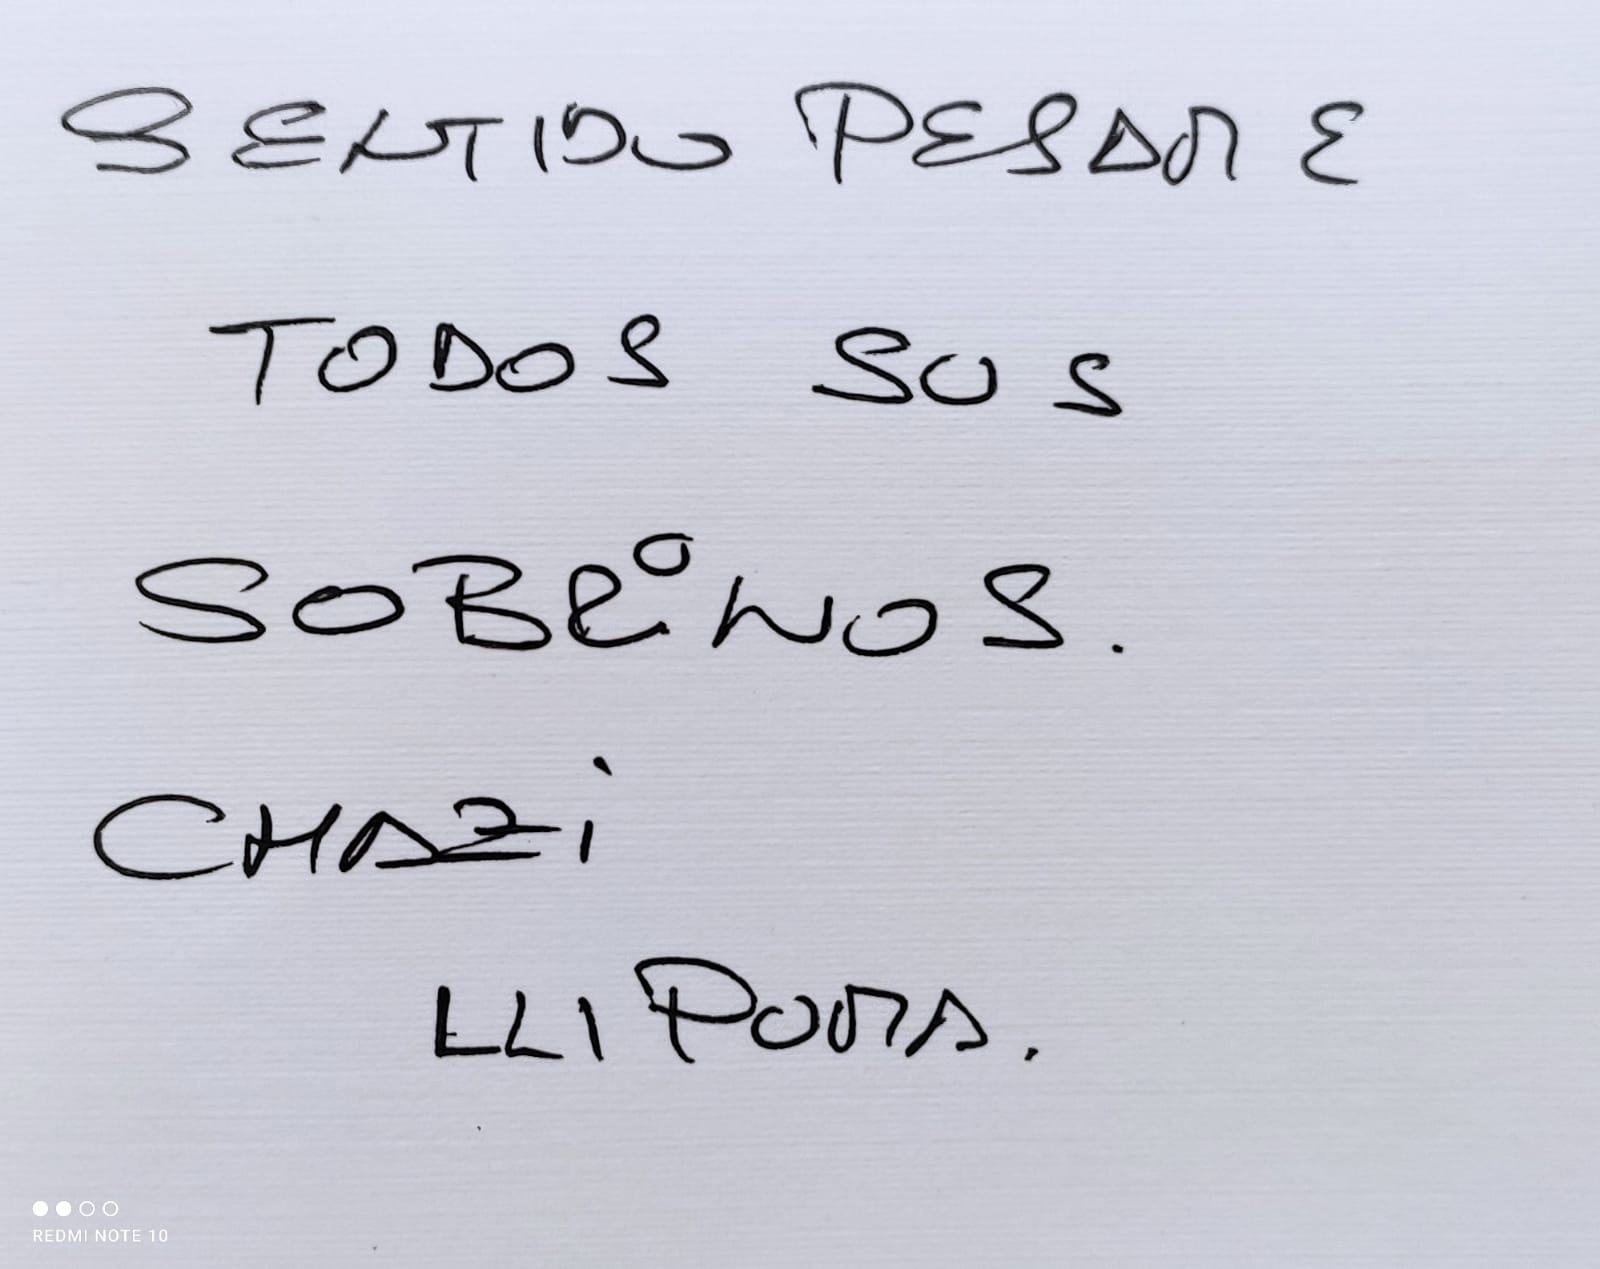 SENTIDO PESAME
TODOS SUS
SOBRºNOS.
CHAZi
LLIPOMA.
REDMI NOTE 10